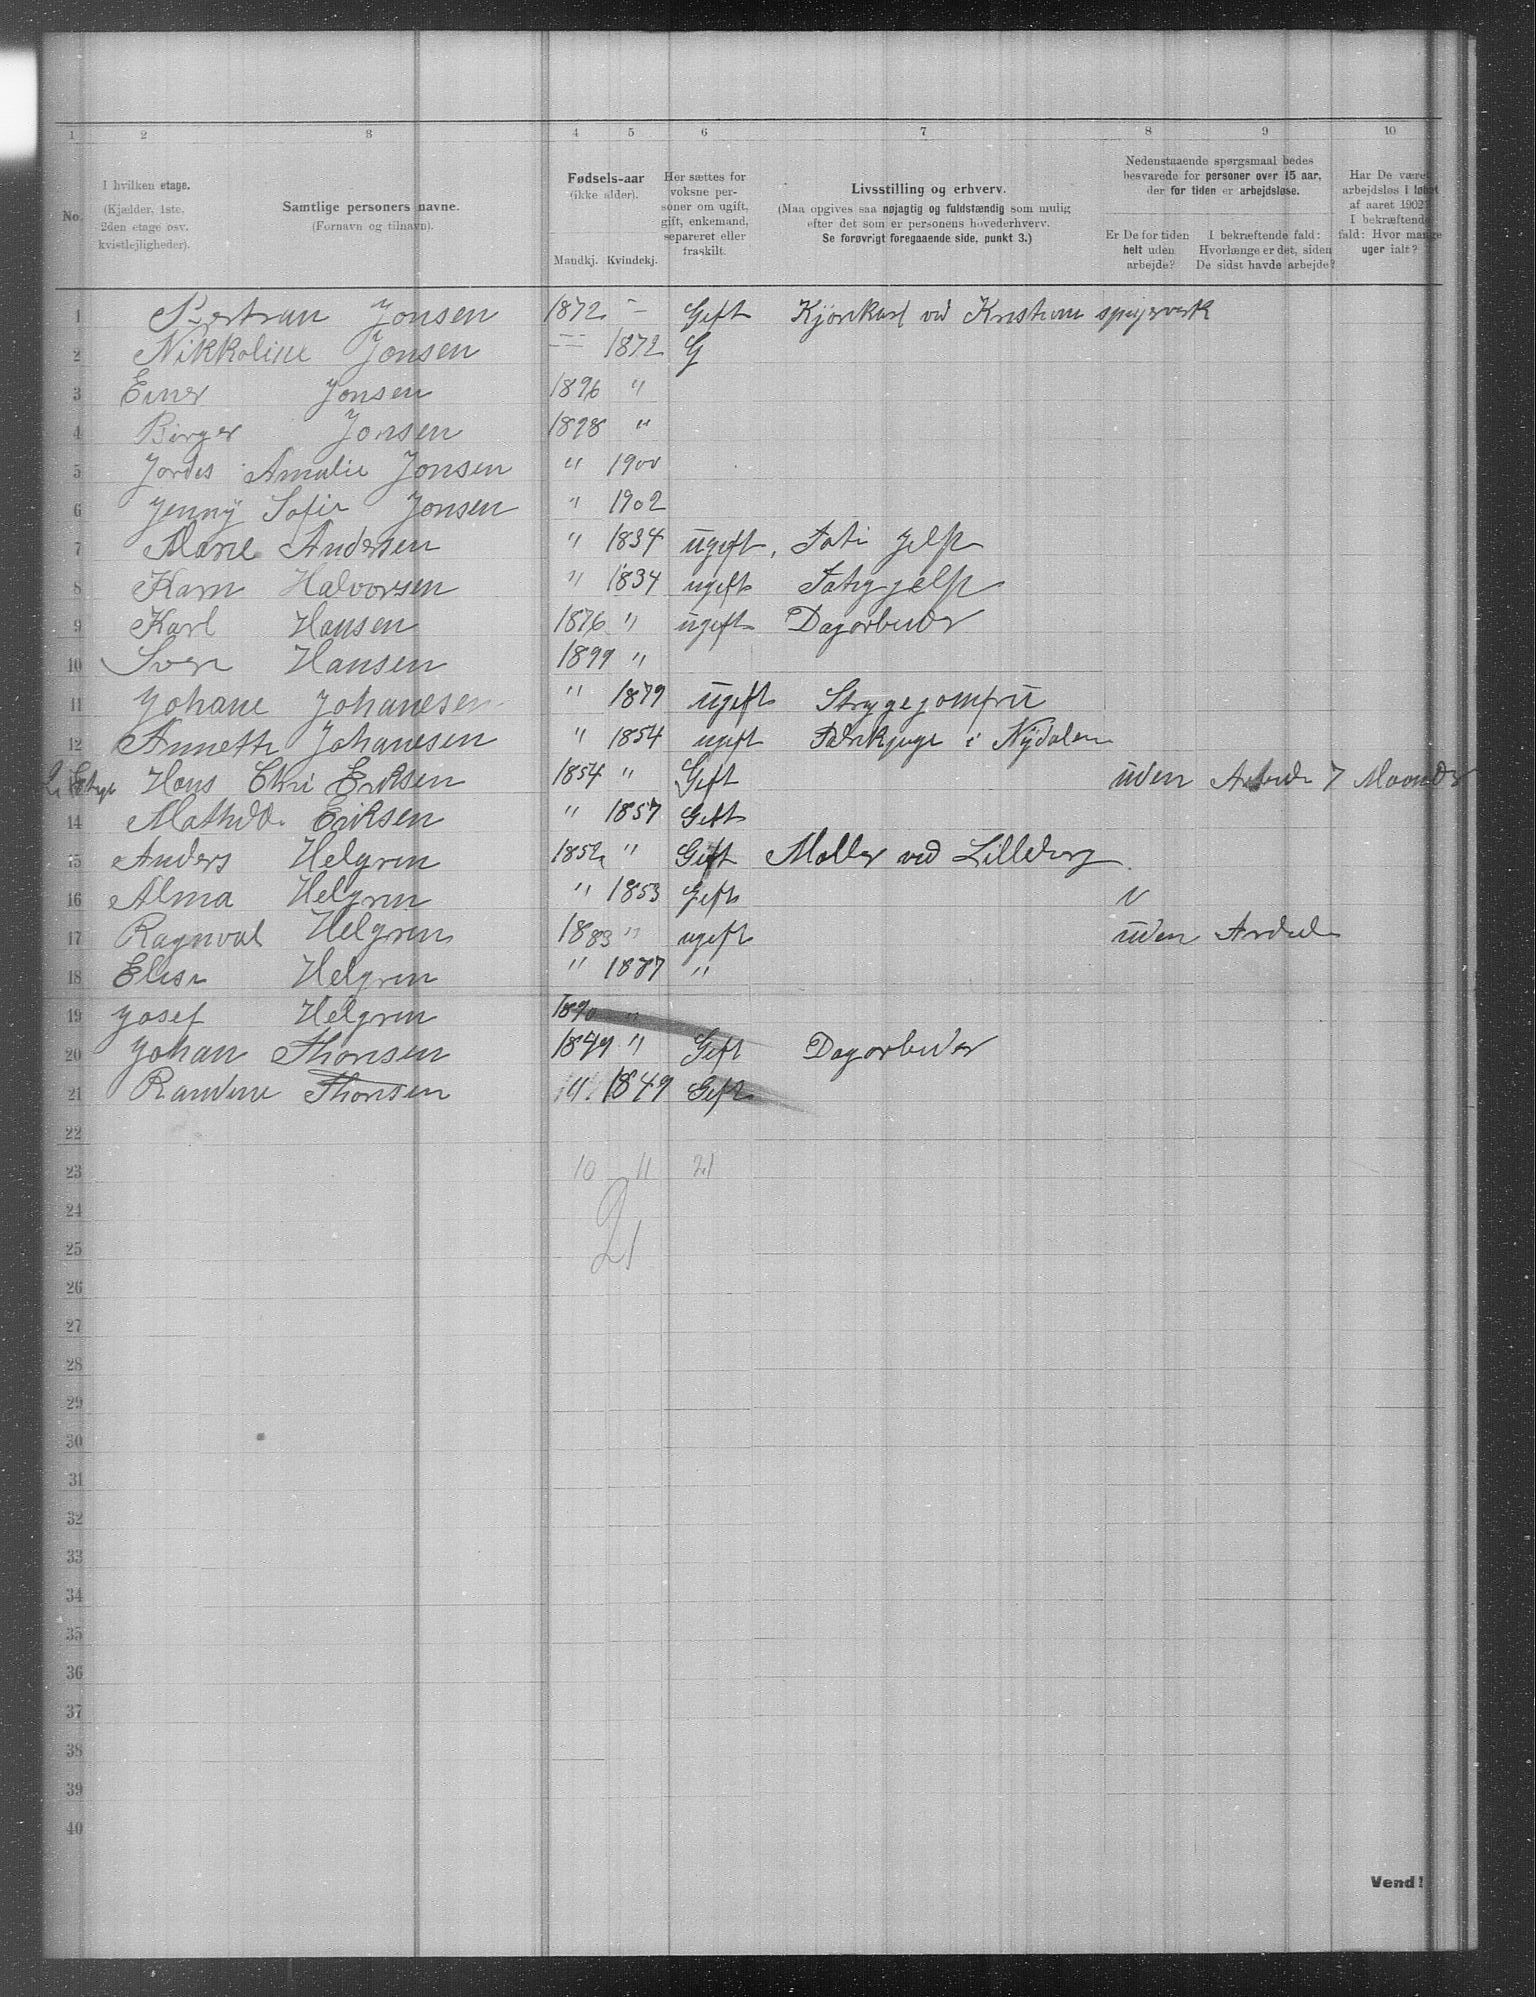 1 2 3 4 5 6 7 8 9 10
No.
I hvilken etage.
(Kjælder, 1ste,
2den etage osv.
kvistlejligheder).
Samtlige personers navne.
(Fornavn og tilnavn).
Fødsels-aar
(ikke alder).
Mandkj. Kvindekj.
Her sættes for
voksne per-
soner om ugift,
gift, enkemand,
separeret eller
fraskilt.
Livsstilling og erhverv.
(Maa opgives saa nøjagtig og fuldstændig som mulig
efter det som er personens hovederhverv.
Se forøvrigt foregaaende side, punkt 3.)
Nedenstaaende spørgsmaal bedes
besvarede for personer over 15 aar,
der for tiden er arbejdsløse.
Er De for tiden
helt uden
arbejde?
I bekræftende fald:
Hvorlænge er det, siden
De sidst havde arbejde?
Har De været
arbejdsløs i løbet
af aaret 1902?
I bekræftende
fald: Hvor mange
uger ialt?
1 Jonsen 1872 - Gift Kjørekarl ved spigerverk
2 Nikkoline Jonsen 1872 G
3 Einer Jonsen 1896 "
4 Birger Jonsen 1898 "
5 Jordis Amalie Jonsen " 1900
6 Jenny Sofie Jonsen " 1902
7 Marie Andersen " 1834 ugift,
8 Karn Halvorsen " 1834 ugift
9 Karl Hansen 1876 " ugift Dagarbeider
10 Sven Hansen 1899 "
11 Johane Johanesen " 1879 ugift Strygejomfru
12 Annette Johanesen " 1854 ugift i Nydalen
Hans Chri Eriksen 1854 " Gift uden 7 Maaneder
14 Mathilde Eriksen " 1857 Gift
15 Anders Helgren 1852 " Gift Maller ved Lilleborg
16 Alma Helgren " 1853 Gift
17 Ragnval Helgren 1883 " ugift uden
18 Elise Helgren " 1887 "
19 Josef Helgren 1890 "
20 Johan Thorsen 1849 " Gift Dagarbeider
21 Randine Thorsen " 1849 Gift
22
23 10 11 21
24 21
25
26
27
28
29
30
31
32
33
34
35
36
37
38
39
40
Vend!